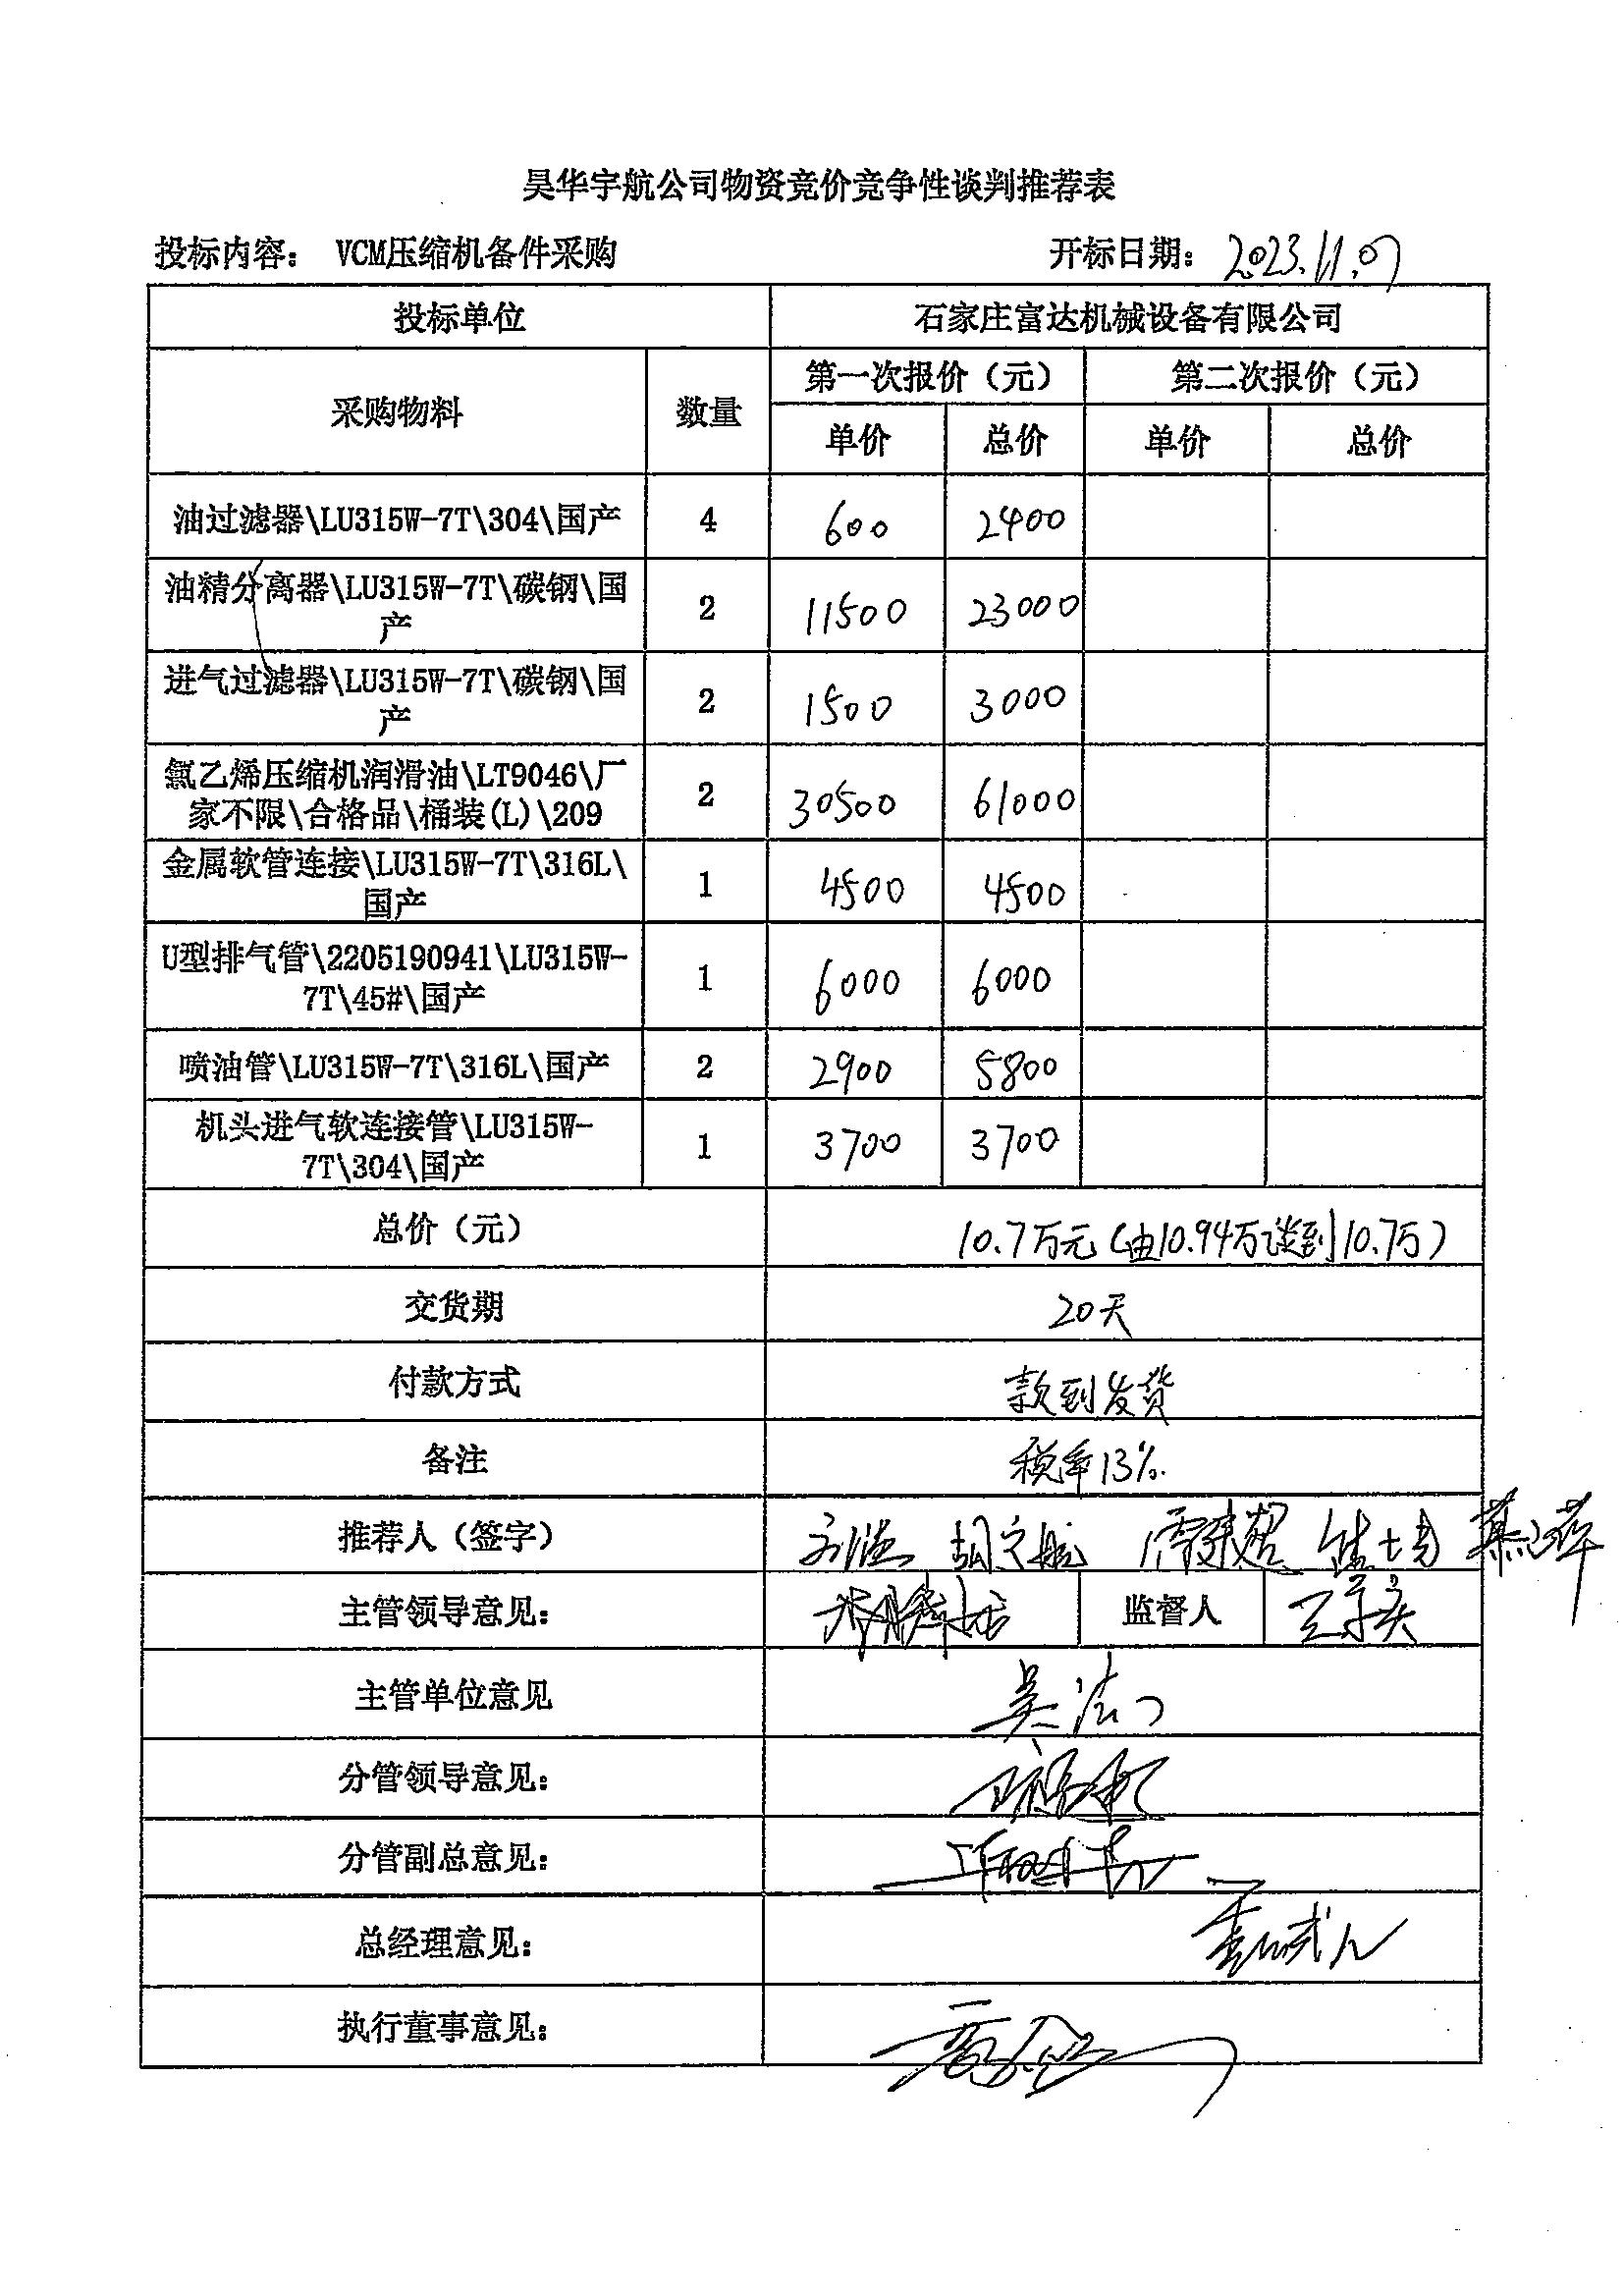 昊华宇航公司物资竞价竞争性谈判推荐表
投标内容： VCM压缩机备件采购 开标日期： 2023.11.07
投标单位 石家庄富达机械设备有限公司
采购物料 数量 第一次报价（元） 第二次报价（元）
单价 总价 单价 总价
油过滤器\LU315W-7T\304\国产 4 600 2400
油精分离器\LU315W-7T\碳钢\国
产 2 11500 23000
进气过滤器\LU315W-7T\碳钢\国
产 2 1500 3000
氯乙烯压缩机润滑油\LT9046\厂
家不限\合格品\桶装(L)\209 2 30500 61000
金属软管连接\LU315W-7T\316L\
国产 1 4500 4500
U型排气管\2205190941\LU315W-
7T\45#\国产 1 6000 6000
喷油管\LU315W-7T\316L\国产 2 2900 5800
机头进气软连接管\LU315W-
7T\304\国产 1 3700 3700
总价（元） 10.7万元（由10.94万谈到10.7万）
交货期 20天
付款方式 款到发货
备注 税率13%.
推荐人（签字）
主管领导意见： 监督人
主管单位意见
分管领导意见：
分管副总意见：
总经理意见：
执行董事意见：